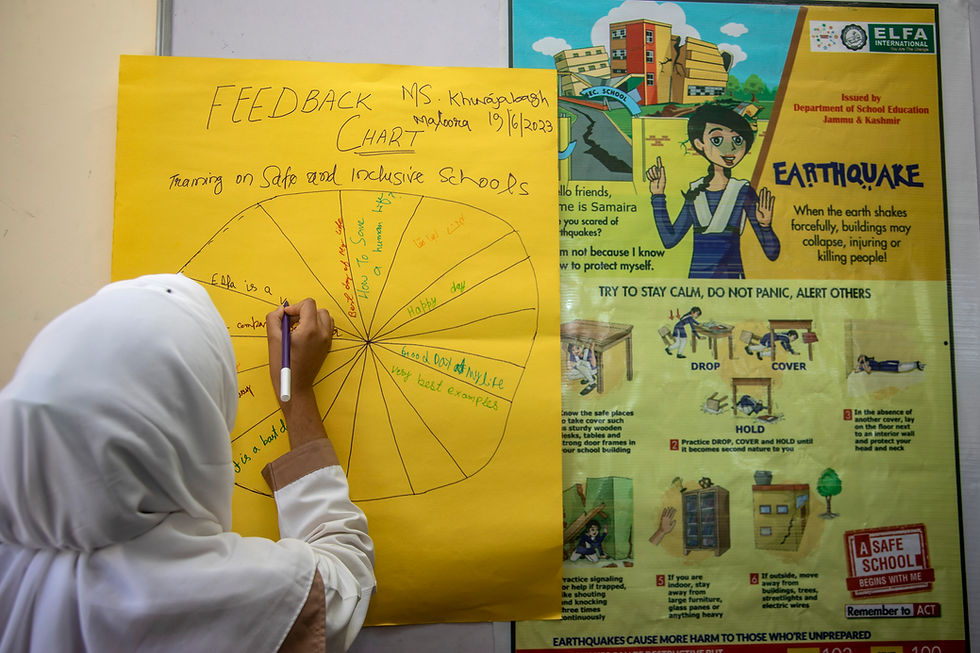 FEEDBACK
CHART
MS. Khwajabagh
Maloora 19/6/2023
Training on Safe and Inclusive Schools
Best day of My life
How To Save
a human life
Happy day
Good Day of My life
Very best examples
Elfa is a
is a best d
SEC. SCHOOL
ELFA
INTERNATIONAL
You Are The Change
Issued by
Department of School Education
Jammu & Kashmir
EARTHQUAKE
When the earth shakes
forcefully, buildings may
collapse, injuring or
killing people!
ello friends,
me is Samaira
e you scared of
thquakes?
m not because I know
w to protect myself.
TRY TO STAY CALM, DO NOT PANIC, ALERT OTHERS
DROP
COVER
HOLD
Know the safe places
to take cover such
s sturdy wooden
esks, tables and
trong door frames in
your school building
2 Practice DROP, COVER and HOLD until
it becomes second nature to you
3 In the absence of
another cover, lay
on the floor next
to an interior wall
and protect your
head and neck
ractice signaling
or help if trapped,
ike shouting
and knocking
hree times
continuously
5 If you are
indoor, stay
away from
large furniture,
glass panes or
anything heavy
6 If outside, move
away from
buildings, trees,
streetlights and
electric wires
A SAFE
SCHOOL
BEGINS WITH ME
Remember to ACT
EARTHQUAKES CAUSE MORE HARM TO THOSE WHO'RE UNPREPARED